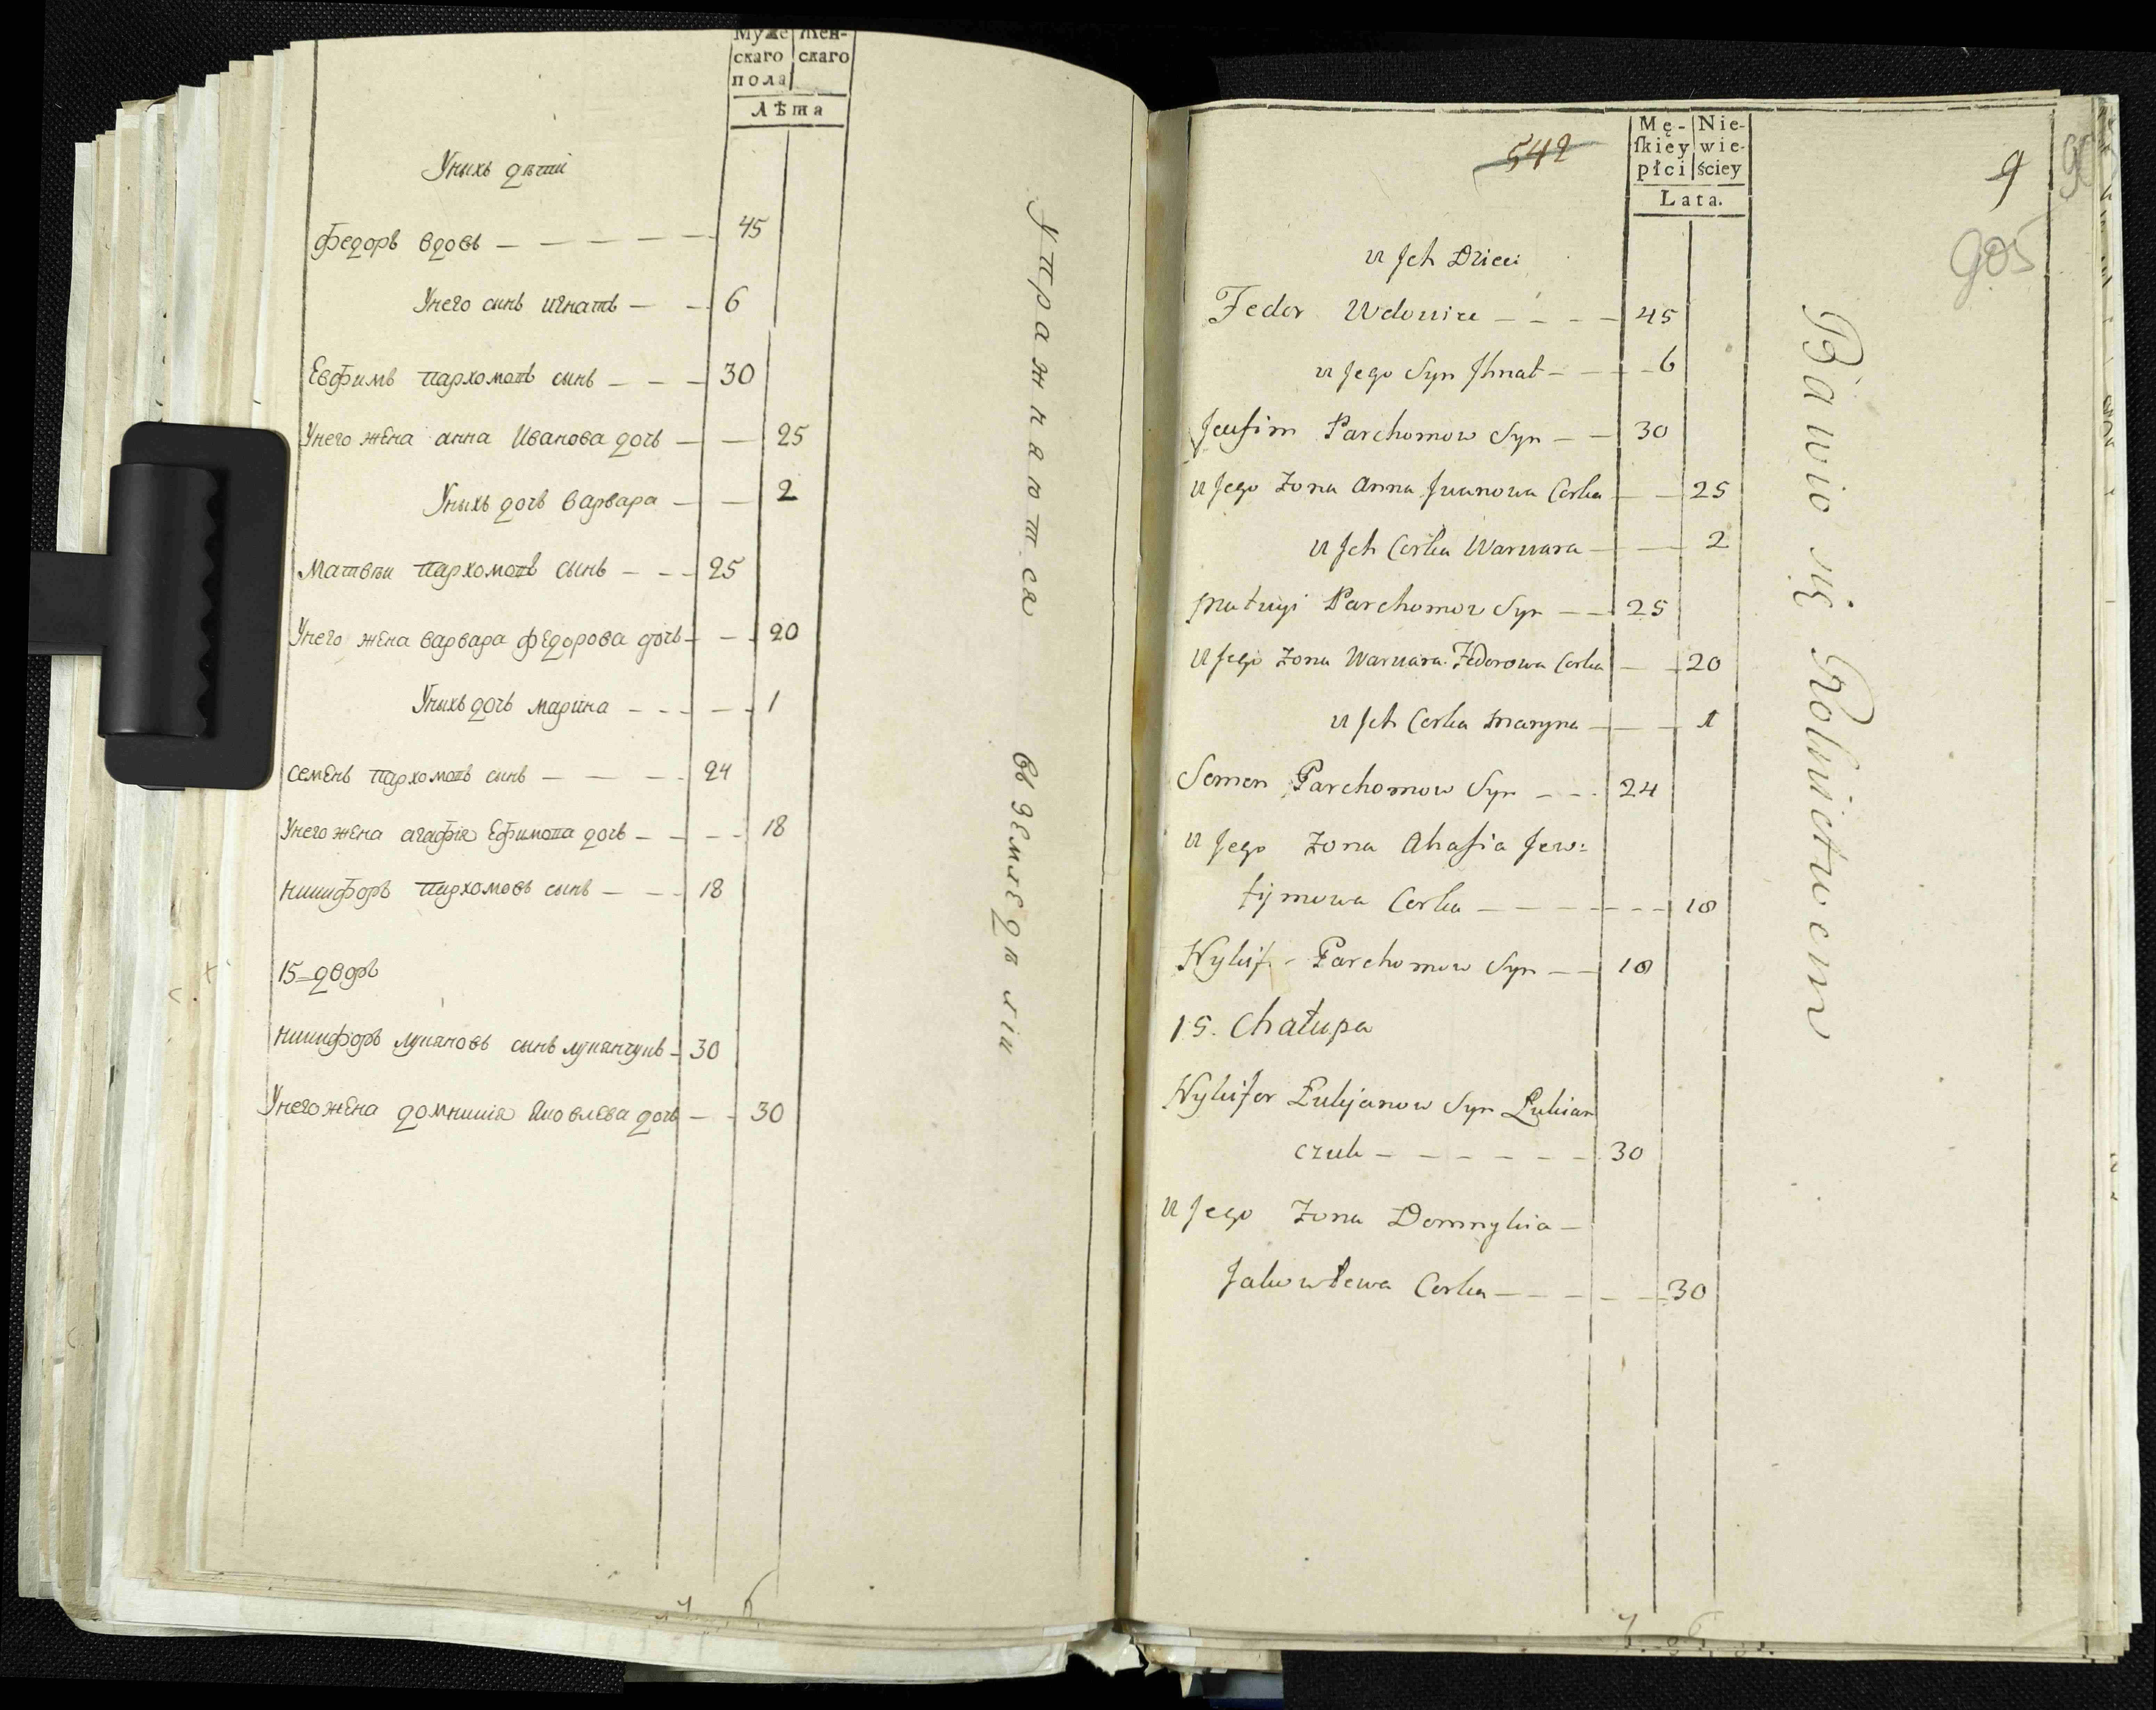 Муже Жен-
скаго скаго
пола
Лѣта
Уныхъ дѣти
Федоръ вдовъ — — — — — — 45
Унего сынъ игнатъ — — 6
Евфимъ пархомовъ сынъ — — — 30
Унего жена анна Иванова дочь — — 25
Уныхъ дочь варвара — — 2
Матвѣи пархомовъ сынъ — — — 25
Унего жена варвара федорова дочь — — 20
Уныхъ дочь марина — — — — — 1
семенъ пархомовъ сынъ — — — — 24
Унего жена агафія Ефимова дочь — — — — 18
никифоръ пархомовъ сынъ — — — 18
15=дворъ
никифоръ лукяновъ сынъ лукянчукъ — 30
Унего жена домникія Яковлева дочь — — 30
Упражнаютса въ земледѣліи
542
Mę- Nie-
ſkiey wie-
płci ściey
Lata.
9
905
u Jch Dzieci
Fedor Wdowiec — — — — 45
u Jego Syn Jhnat — — — — 6
Jeufim Parchomow Syn — — 30
u Jego Zona Anna Jwanowa Corka — — 25
u Jch Corka Warwara — — 2
Matwyi Parchomow Syn — — 25
u Jego Zona Warwara Fedorowa Corka — — 20
u Jch Corka Maryna — — 1
Semen Parchomow Syn — — - 24
u Jego Zona Ahafia Jew=
fijmowa Corka — — — — - - - 18
Nykif - Parchomow Syn — — 18
15. Chałupa
Nykifor Łukjanow Syn Łukian
czuk — — — — — — 30
u Jego Zona Domnykia —
Jakowłewa Corka — — — — — 30
Bawio się Rolnictwem